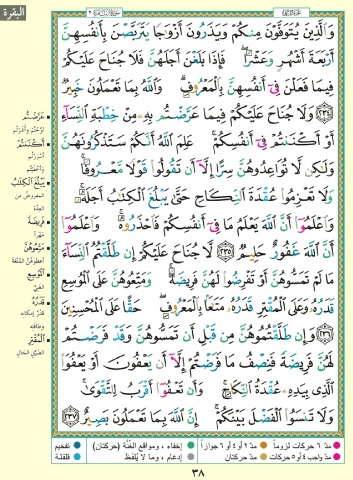 البقرة
وَالَّذِينَ يُتَوَفَّوْنَ مِنكُمْ وَيَذَرُونَ أَزْوَاجًا يَتَرَبَّصْنَ بِأَنفُسِهِنَّ
أَرْبَعَةَ أَشْهُرٍ وَعَشْرًا ۖ فَإِذَا بَلَغْنَ أَجَلَهُنَّ فَلَا جُنَاحَ عَلَيْكُمْ
فِيمَا فَعَلْنَ فِي أَنفُسِهِنَّ بِالْمَعْرُوفِ ۗ وَاللَّهُ بِمَا تَعْمَلُونَ خَبِيرٌ
٢٣٤ وَلَا جُنَاحَ عَلَيْكُمْ فِيمَا عَرَّضْتُم بِهِ مِنْ خِطْبَةِ النِّسَاءِ
أَوْ أَكْنَنتُمْ فِي أَنفُسِكُمْ ۚ عَلِمَ اللَّهُ أَنَّكُمْ سَتَذْكُرُونَهُنَّ
وَلَٰكِن لَّا تُوَاعِدُوهُنَّ سِرًّا إِلَّا أَن تَقُولُوا قَوْلًا مَّعْرُوفًا ۚ
وَلَا تَعْزِمُوا عُقْدَةَ النِّكَاحِ حَتَّىٰ يَبْلُغَ الْكِتَابُ أَجَلَهُ ۚ
وَاعْلَمُوا أَنَّ اللَّهَ يَعْلَمُ مَا فِي أَنفُسِكُمْ فَاحْذَرُوهُ ۚ وَاعْلَمُوا
أَنَّ اللَّهَ غَفُورٌ حَلِيمٌ ٢٣٥ لَّا جُنَاحَ عَلَيْكُمْ إِن طَلَّقْتُمُ النِّسَاءَ
مَا لَمْ تَمَسُّوهُنَّ أَوْ تَفْرِضُوا لَهُنَّ فَرِيضَةً ۚ وَمَتِّعُوهُنَّ عَلَى الْمُوسِعِ
قَدَرُهُ وَعَلَى الْمُقْتِرِ قَدَرُهُ مَتَاعًا بِالْمَعْرُوفِ ۖ حَقًّا عَلَى الْمُحْسِنِينَ
٢٣٦ وَإِن طَلَّقْتُمُوهُنَّ مِن قَبْلِ أَن تَمَسُّوهُنَّ وَقَدْ فَرَضْتُمْ
لَهُنَّ فَرِيضَةً فَنِصْفُ مَا فَرَضْتُمْ إِلَّا أَن يَعْفُونَ أَوْ يَعْفُوَ
الَّذِي بِيَدِهِ عُقْدَةُ النِّكَاحِ ۚ وَأَن تَعْفُوا أَقْرَبُ لِلتَّقْوَىٰ ۚ
وَلَا تَنسَوُا الْفَضْلَ بَيْنَكُمْ ۚ إِنَّ اللَّهَ بِمَا تَعْمَلُونَ بَصِيرٌ ٢٣٧
عَرَّضْتُم
لَوَّحْتُم وأَشَرْتُم
أَكْنَنتُمْ
أَسْرَرْتُم
وأَخْفَيْتُم
يَبْلُغَ الْكِتَابُ
المفروض من
العِدَّة
فَرِيضَةً
مَهْراً
مَتِّعُوهُنَّ
أَعْطُوهُنَّ المُتْعَة
الْمُوسِعِ
الغَنِيِّ
قَدَرُهُ
قَدْرُ إمكانه
وطاقته
الْمُقْتِرِ
الضَّيِّق الحال
مدّ ٦ حركات لزوماً
مدّ ٢ أو ٤ أو ٦ جوازاً
إخفاء، ومواقع الغُنَّة (حركتان)
تفخيم
مدّ واجب ٤ أو ٥ حركات
مدّ حركتان
إدغام، وما لا يُلفظ
قلقلة
٣٨